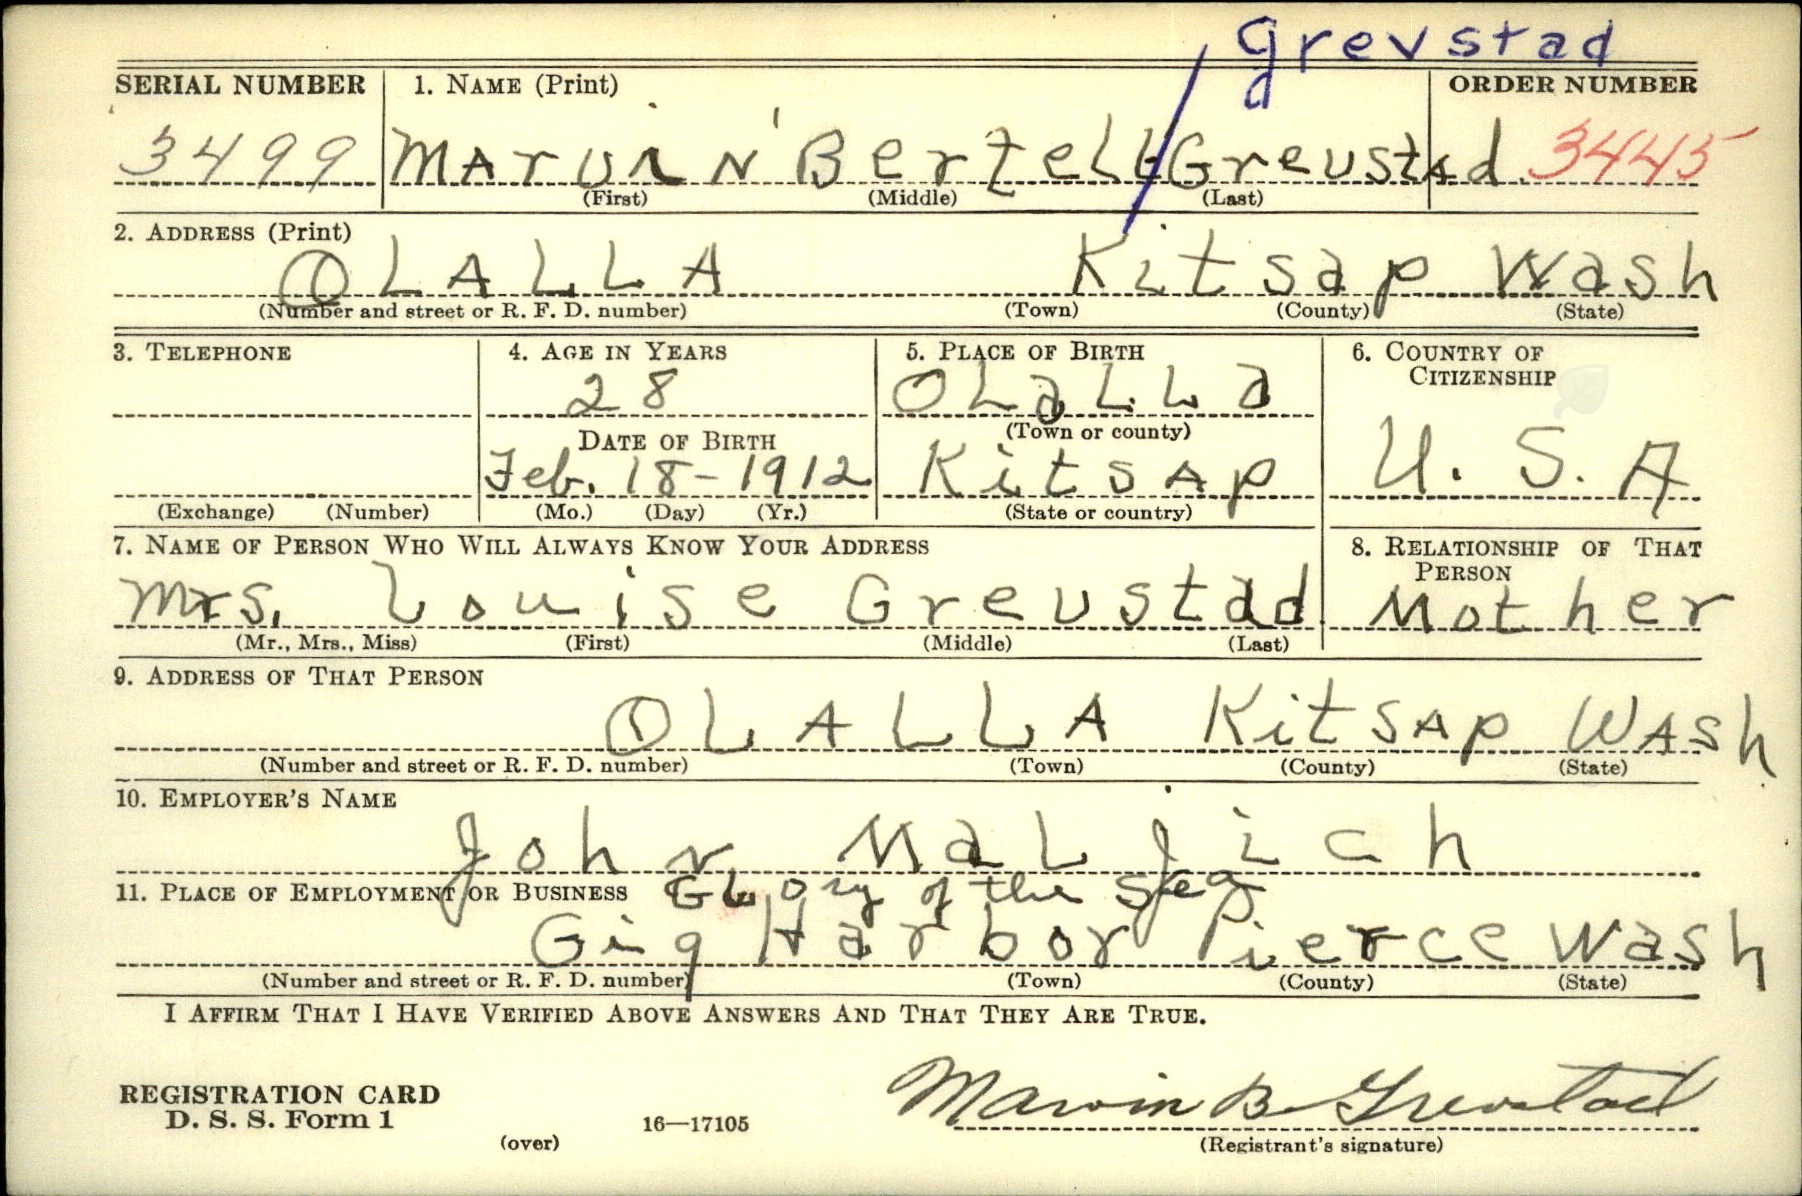 Grevstad
SERIAL NUMBER 1. NAME (Print) ORDER NUMBER
3499 MARVIN Bertell Grevstad 3445
(First) (Middle) (Last)
2. ADDRESS (Print)
OLALLA Kitsap Wash
(Number and street or R. F. D. number) (Town) (County) (State)
3. TELEPHONE 4. AGE IN YEARS 5. PLACE OF BIRTH 6. COUNTRY OF CITIZENSHIP
28 OLaLLa
DATE OF BIRTH (Town or county)
Feb. 18-1912 KitsAp U. S. A
(Exchange) (Number) (Mo.) (Day) (Yr.) (State or country)
7. NAME OF PERSON WHO WILL ALWAYS KNOW YOUR ADDRESS 8. RELATIONSHIP OF THAT PERSON
Mrs. Louise Grevstad Mother
(Mr., Mrs., Miss) (First) (Middle) (Last)
9. ADDRESS OF THAT PERSON
OLALLA KitSAp WAsh
(Number and street or R. F. D. number) (Town) (County) (State)
10. EMPLOYER'S NAME
John MaLjich
11. PLACE OF EMPLOYMENT OR BUSINESS Glory of the Sea
Gig Harbor Pierce Wash
(Number and street or R. F. D. number) (Town) (County) (State)
I AFFIRM THAT I HAVE VERIFIED ABOVE ANSWERS AND THAT THEY ARE TRUE.
REGISTRATION CARD Marvin B Grevstad
D. S. S. Form 1 16—17105
(over) (Registrant's signature)